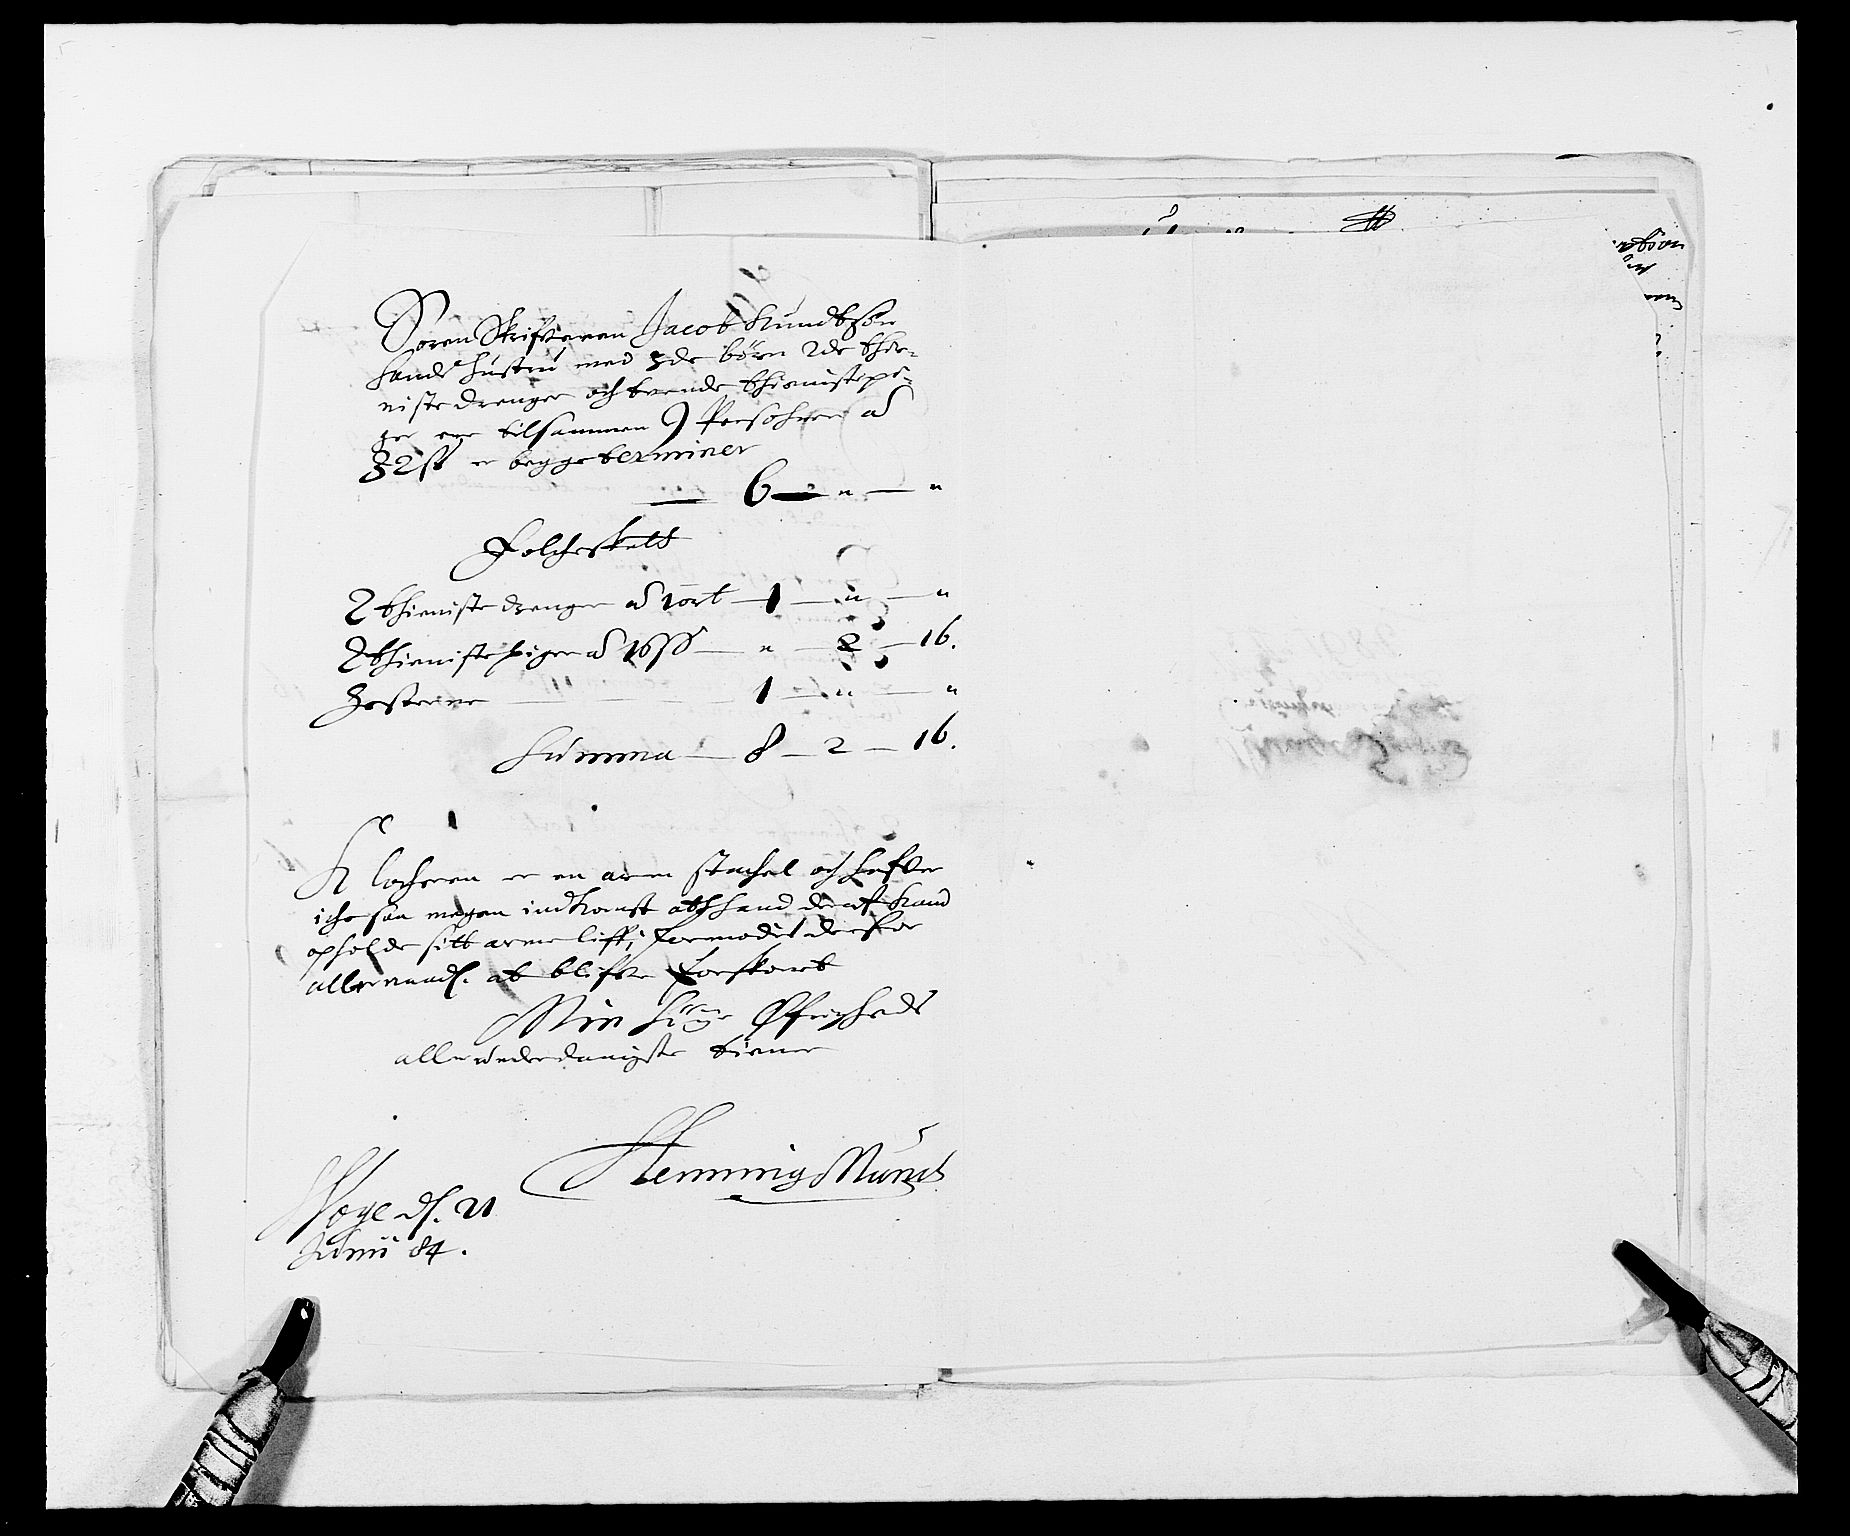 Soren Skrifveren Jacob Knudtsøn
hands hustru med 3de børn 2de thie-
niste drenger och tvende thieniste pi-
ger ere tilsammen 9 Persohner a
32 sk er begge terminer
6 — " — "
Folcheskatt
2 thieniste drenger a 1 ort — 1 — " — "
2 thieniste piger a 16 sk — " — 2 — 16.
Hestene — 1 — " — "
Summa — 8 — 2 — 16.
Klocheren er en arm stachel och hafver
iche saa megen indkomst att hand deraf kand
opholde sitt arme liff, formodis derfor
allernaadl. at blifve forskont
Min høye Øfrigheds
allerunderdanigste tiener
Hemming Munch
Woge dl. 21
Junii 84.